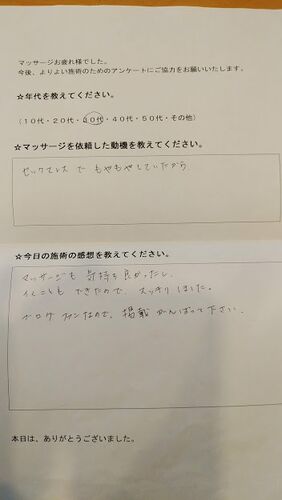 マッサージお疲れ様でした。
今後、よりよい施術のためのアンケートにご協力をお願いいたします。
☆年代を教えてください。
(10代・20代・30代・40代・50代・その他)
☆マッサージを依頼した動機を教えてください。
セックスレスで もやもやしていたから
☆今日の施術の感想を教えてください。
マッサージも 気持ち良かったし、
イくことも できたので スッキリしました。
ブログ ファンなので、掲載 がんばって下さい。
本日は、ありがとうございました。